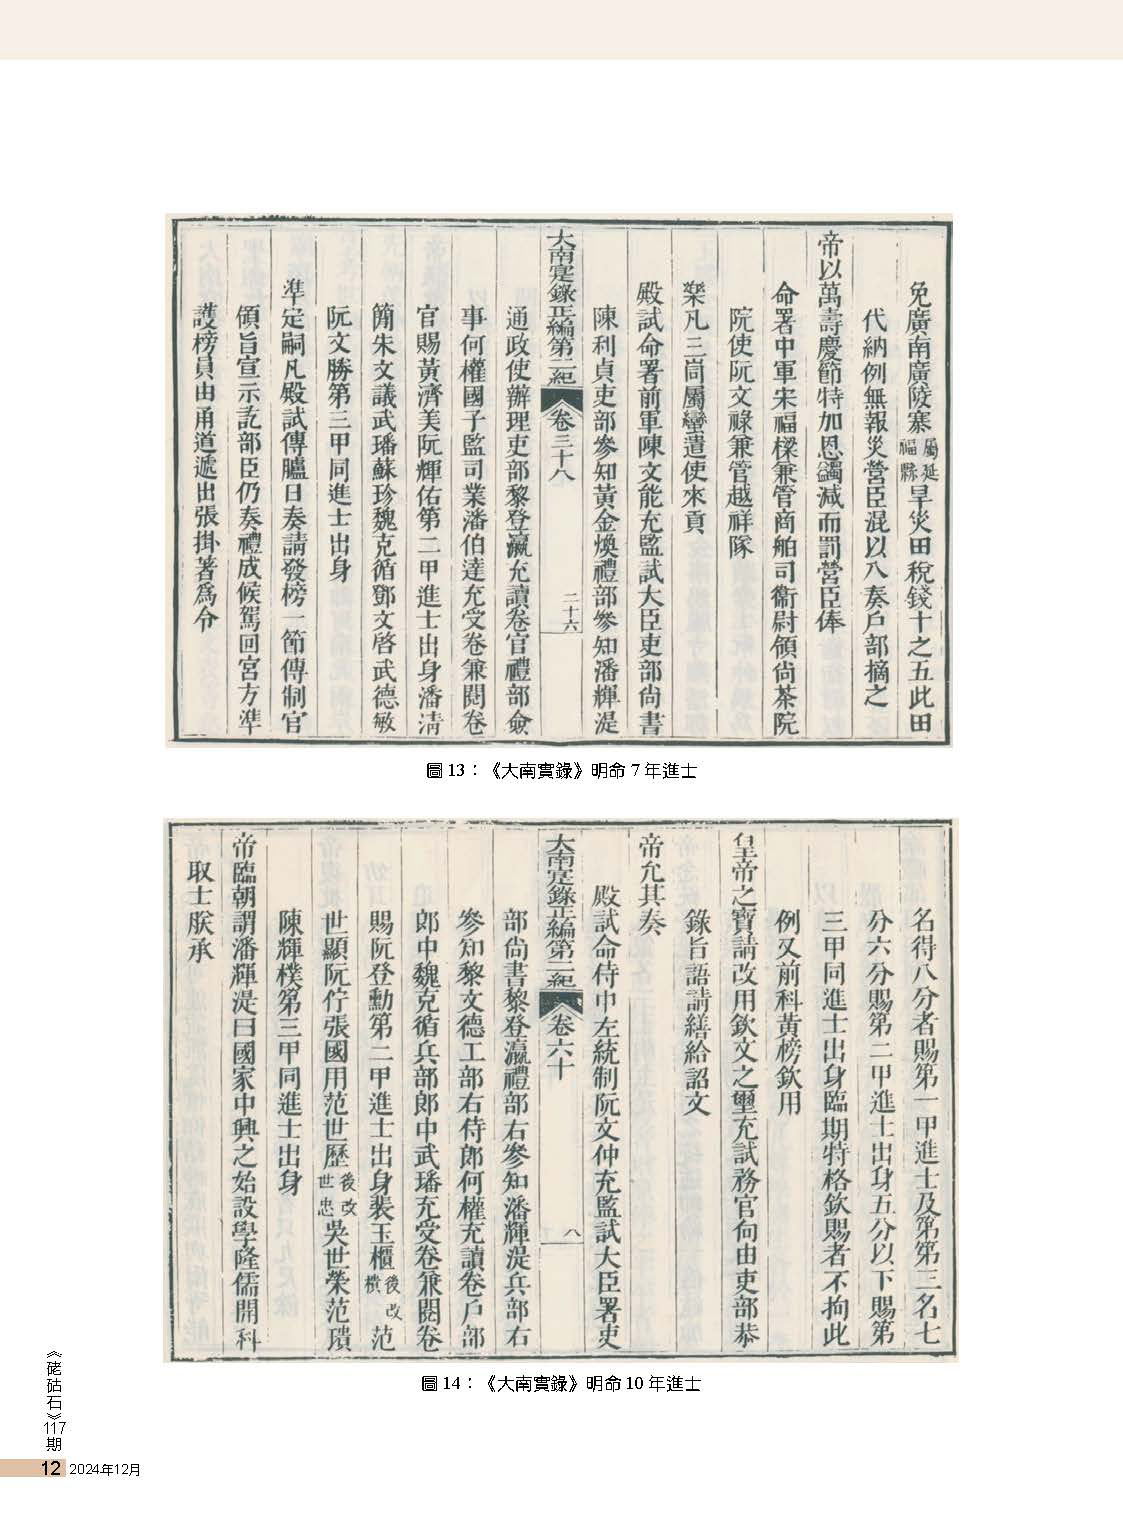 免廣南廣陵寨屬延福縣旱災田稅錢十之五此田
代納例無報災營臣混以入奏戶部摘之
帝以萬壽慶節特加恩蠲減而罰營臣俸
命署中軍宋福樑兼管商舶司衞尉領尚茶院
院使阮文祿兼管越祥隊
樂凡三同屬蠻遣使來貢
殿試命署前軍陳文能充監試大臣吏部尚書
陳利貞吏部參知黃金煥禮部參知潘輝湜
大南寔錄正編第二紀 卷三十八 二十六
通政使辦理吏部黎登瀛充讀卷官禮部僉
事何權國子監司業潘伯達充受卷兼閱卷
官賜黃濟美阮輝佑第二甲進士出身潘清
簡朱文議武璠蘇珍魏克循鄧文啓武德敏
阮文勝第三甲同進士出身
準定嗣凡殿試傳臚日奏請發榜一節傳制官
領旨宣示訖部臣仍奏禮成候駕回宮方準
護榜員由甬道遞出張掛著爲令
圖 13：《大南實錄》明命 7 年進士
名得八分者賜第一甲進士及第第三名七
分六分賜第二甲進士出身五分以下賜第
三甲同進士出身臨期特格欽賜者不拘此
例又前科黃榜欽用
皇帝之寶請改用欽文之璽充試務官向由吏部恭
錄旨語請繕給詔文
帝允其奏
殿試命侍中左統制阮文仲充監試大臣署吏
部尚書黎登瀛禮部右參知潘輝湜兵部右
大南寔錄正編第二紀 卷六十 八
參知黎文德工部右侍郎何權充讀卷戶部
郎中魏克循兵部郎中武璠充受卷兼閱卷
賜阮登勳第二甲進士出身裴玉櫃後改樻范
世顯阮佇張國用范世歷後改世忠吳世榮范瓆
陳輝樸第三甲同進士出身
帝臨朝謂潘輝湜曰國家中興之始設學隆儒開科
取士朕承
圖 14：《大南實錄》明命 10 年進士
《硓𥑮石》117期
12 2024年12月